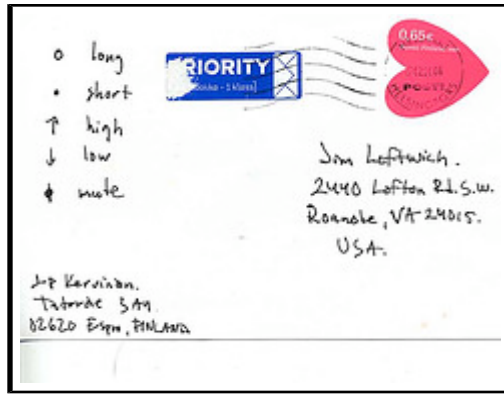 o long
• short
↑ high
↓ low
mute
PRIORITY
- 1 klass]
0,65€
Jim Leftwich.
2440 Lofton Rd. S.W.
Roanoke, VA 24015.
USA.
Kervinen.
3 A9
02620 Espoo, FINLAND.